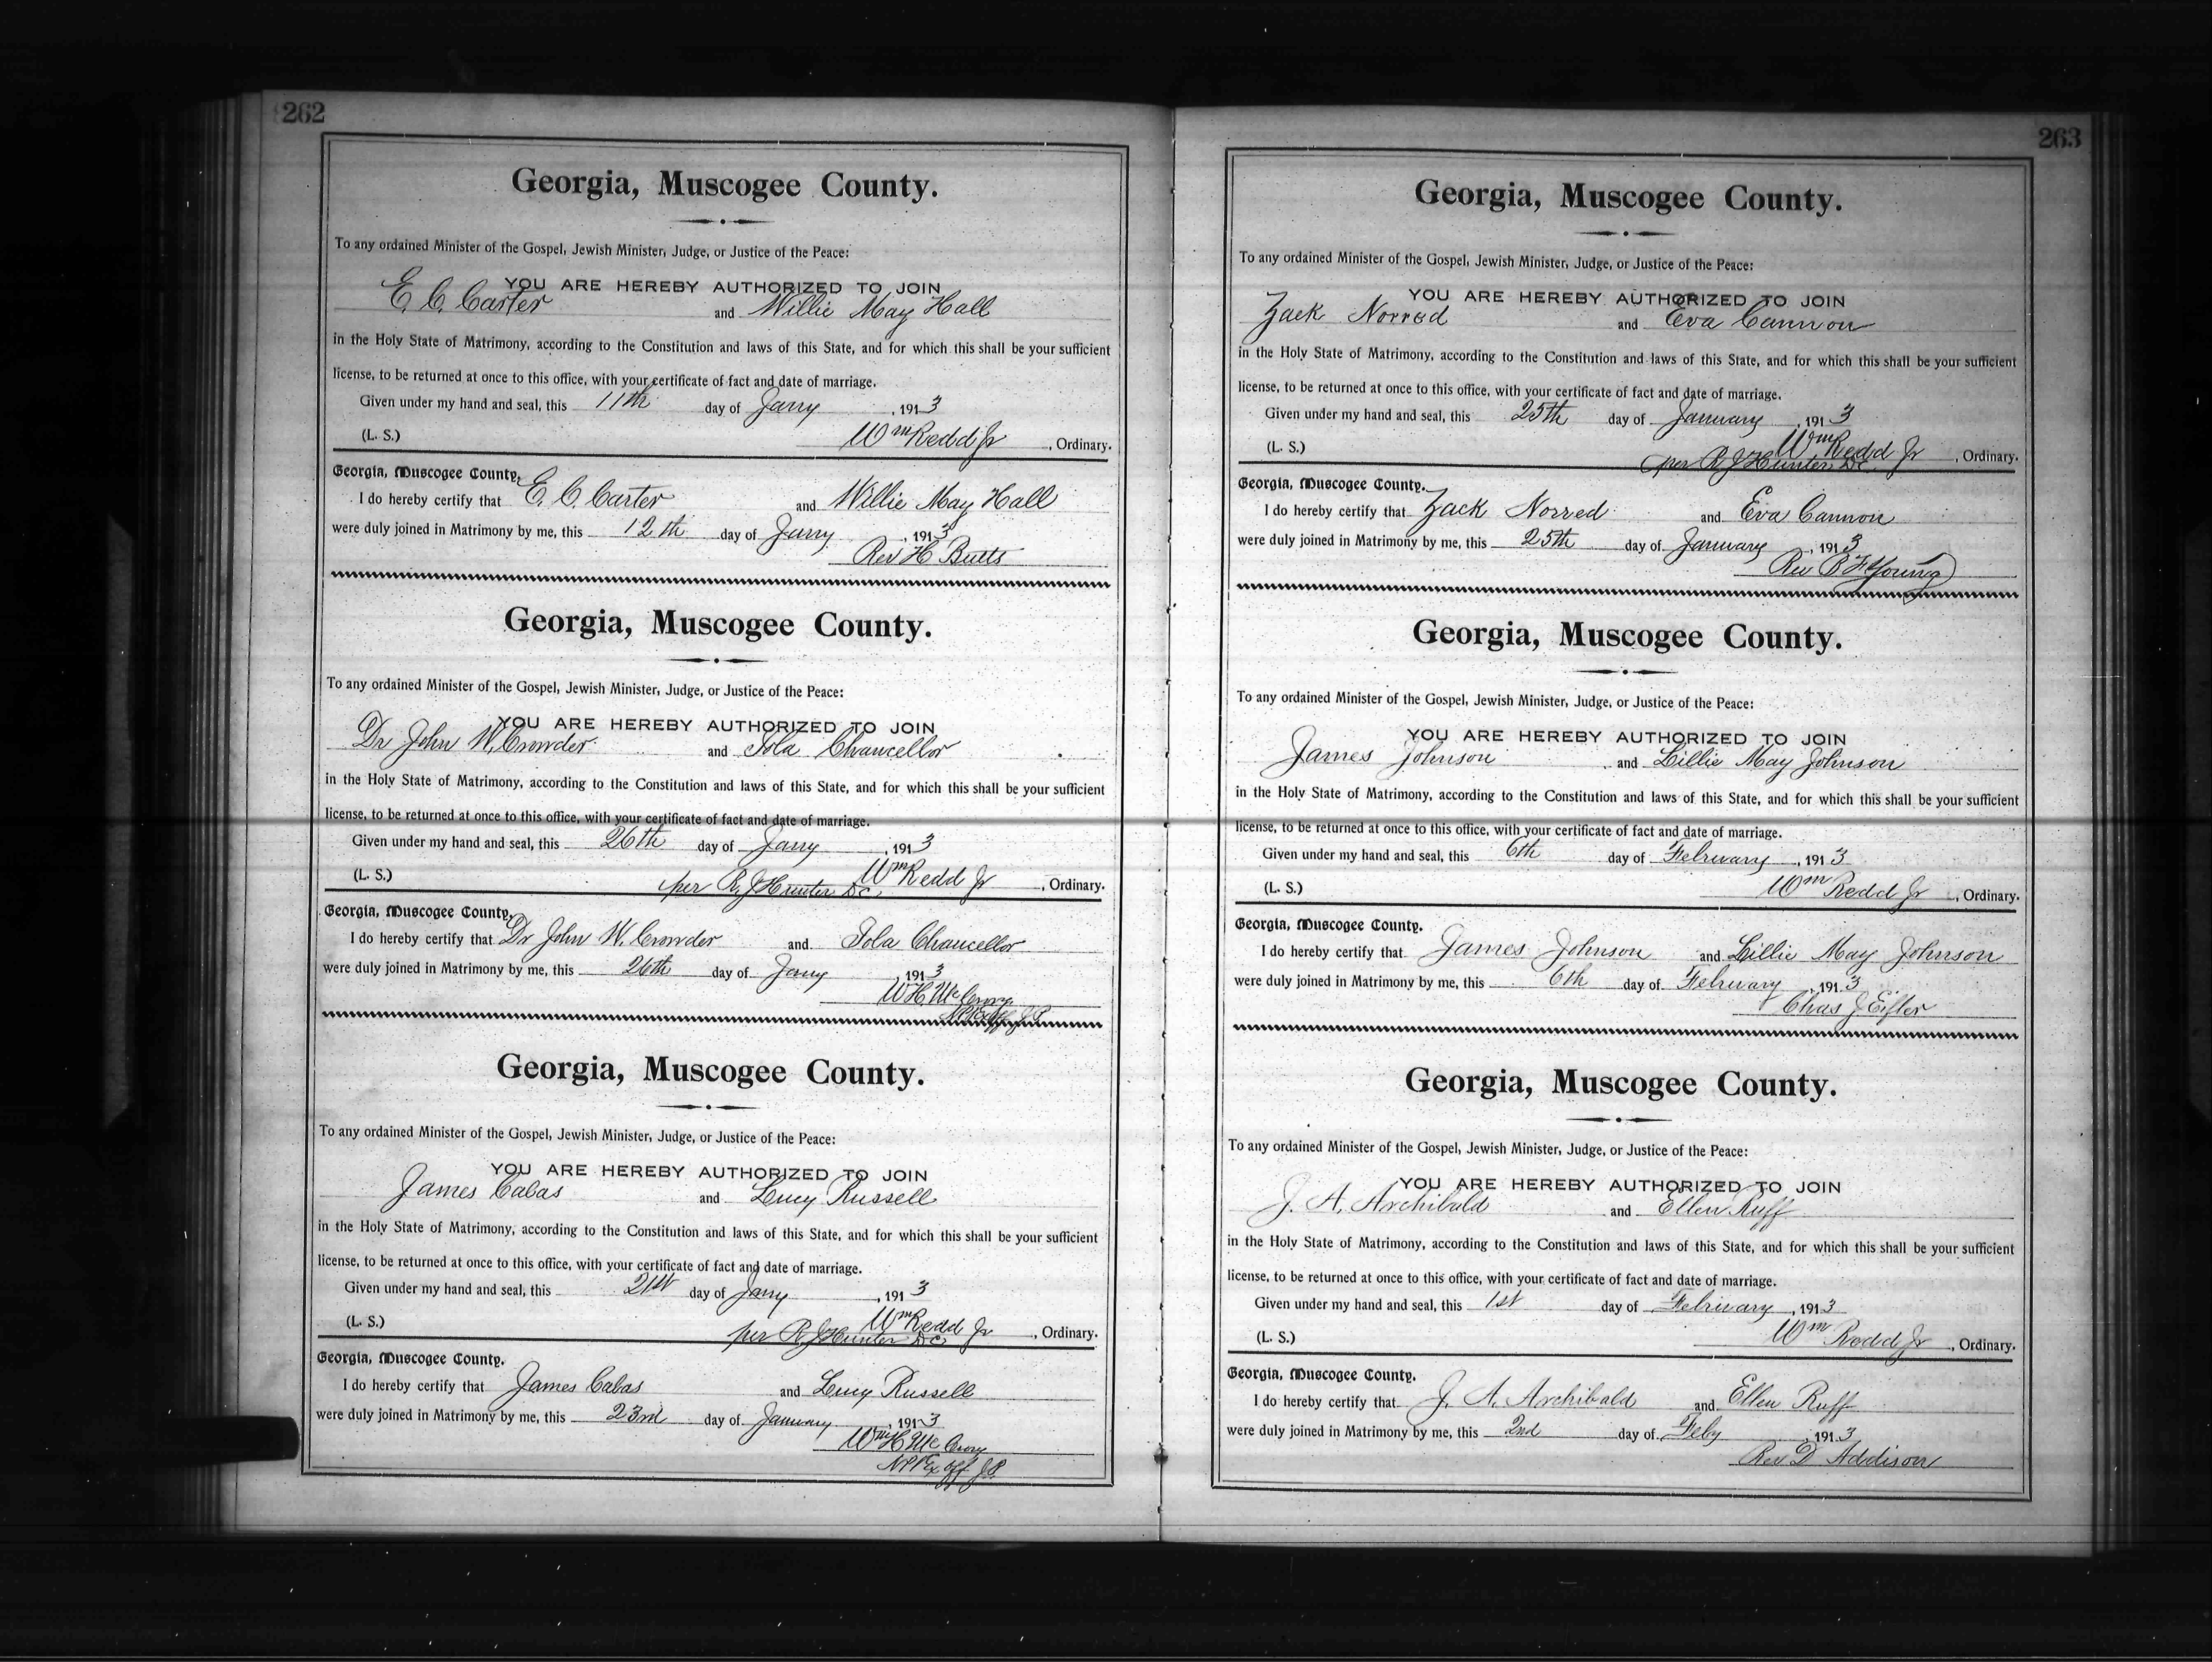 262
Georgia, Muscogee County.
To any ordained Minister of the Gospel, Jewish Minister, Judge, or Justice of the Peace:
YOU ARE HEREBY AUTHORIZED TO JOIN
E. C. Carter and Willie May Hall
in the Holy State of Matrimony, according to the Constitution and laws of this State, and for which this shall be your sufficient
license, to be returned at once to this office, with your certificate of fact and date of marriage.
Given under my hand and seal, this 11th day of Jany, 1913
(L. S.) Wm Redd Jr, Ordinary.
Georgia, Muscogee County.
I do hereby certify that E. C. Carter and Willie May Hall
were duly joined in Matrimony by me, this 12th day of Jany, 1913
Rev H Butts
Georgia, Muscogee County.
To any ordained Minister of the Gospel, Jewish Minister, Judge, or Justice of the Peace:
YOU ARE HEREBY AUTHORIZED TO JOIN
Dr John W. Crowder and Iola Chancellor
in the Holy State of Matrimony, according to the Constitution and laws of this State, and for which this shall be your sufficient
license, to be returned at once to this office, with your certificate of fact and date of marriage.
Given under my hand and seal, this 26th day of Jany, 1913
(L. S.) Wm Redd Jr, Ordinary.
per R. J Hunter D.C.
Georgia, Muscogee County.
I do hereby certify that Dr John W. Crowder and Iola Chancellor
were duly joined in Matrimony by me, this 26th day of Jany, 1913
W H McCrory
J P
Georgia, Muscogee County.
To any ordained Minister of the Gospel, Jewish Minister, Judge, or Justice of the Peace:
YOU ARE HEREBY AUTHORIZED TO JOIN
James Cabas and Lucy Russell
in the Holy State of Matrimony, according to the Constitution and laws of this State, and for which this shall be your sufficient
license, to be returned at once to this office, with your certificate of fact and date of marriage.
Given under my hand and seal, this 21st day of Jany, 1913
(L. S.) Wm Redd Jr, Ordinary.
per R. J Hunter D.C.
Georgia, Muscogee County.
I do hereby certify that James Cabas and Lucy Russell
were duly joined in Matrimony by me, this 23rd day of January, 1913
Wm H McCrory
N P & Ex off. J.P.
263
Georgia, Muscogee County.
To any ordained Minister of the Gospel, Jewish Minister, Judge, or Justice of the Peace:
YOU ARE HEREBY AUTHORIZED TO JOIN
Zack Norred and Eva Cannon
in the Holy State of Matrimony, according to the Constitution and laws of this State, and for which this shall be your sufficient
license, to be returned at once to this office, with your certificate of fact and date of marriage.
Given under my hand and seal, this 25th day of January, 1913
(L. S.) Wm Redd Jr, Ordinary.
per R. J Hunter D.C.
Georgia, Muscogee County.
I do hereby certify that Zack Norred and Eva Cannon
were duly joined in Matrimony by me, this 25th day of January, 1913
Rev R F Young
Georgia, Muscogee County.
To any ordained Minister of the Gospel, Jewish Minister, Judge, or Justice of the Peace:
YOU ARE HEREBY AUTHORIZED TO JOIN
James Johnson and Lillie May Johnson
in the Holy State of Matrimony, according to the Constitution and laws of this State, and for which this shall be your sufficient
license, to be returned at once to this office, with your certificate of fact and date of marriage.
Given under my hand and seal, this 6th day of February, 1913
(L. S.) Wm Redd Jr, Ordinary.
Georgia, Muscogee County.
I do hereby certify that James Johnson and Lillie May Johnson
were duly joined in Matrimony by me, this 6th day of February, 1913
Chas J Eifler
Georgia, Muscogee County.
To any ordained Minister of the Gospel, Jewish Minister, Judge, or Justice of the Peace:
YOU ARE HEREBY AUTHORIZED TO JOIN
J. A. Archibald and Ellen Ruff
in the Holy State of Matrimony, according to the Constitution and laws of this State, and for which this shall be your sufficient
license, to be returned at once to this office, with your certificate of fact and date of marriage.
Given under my hand and seal, this 1st day of February, 1913
(L. S.) Wm Redd Jr, Ordinary.
Georgia, Muscogee County.
I do hereby certify that J. A. Archibald and Ellen Ruff
were duly joined in Matrimony by me, this 2nd day of Feby, 1913
Rev D Addison